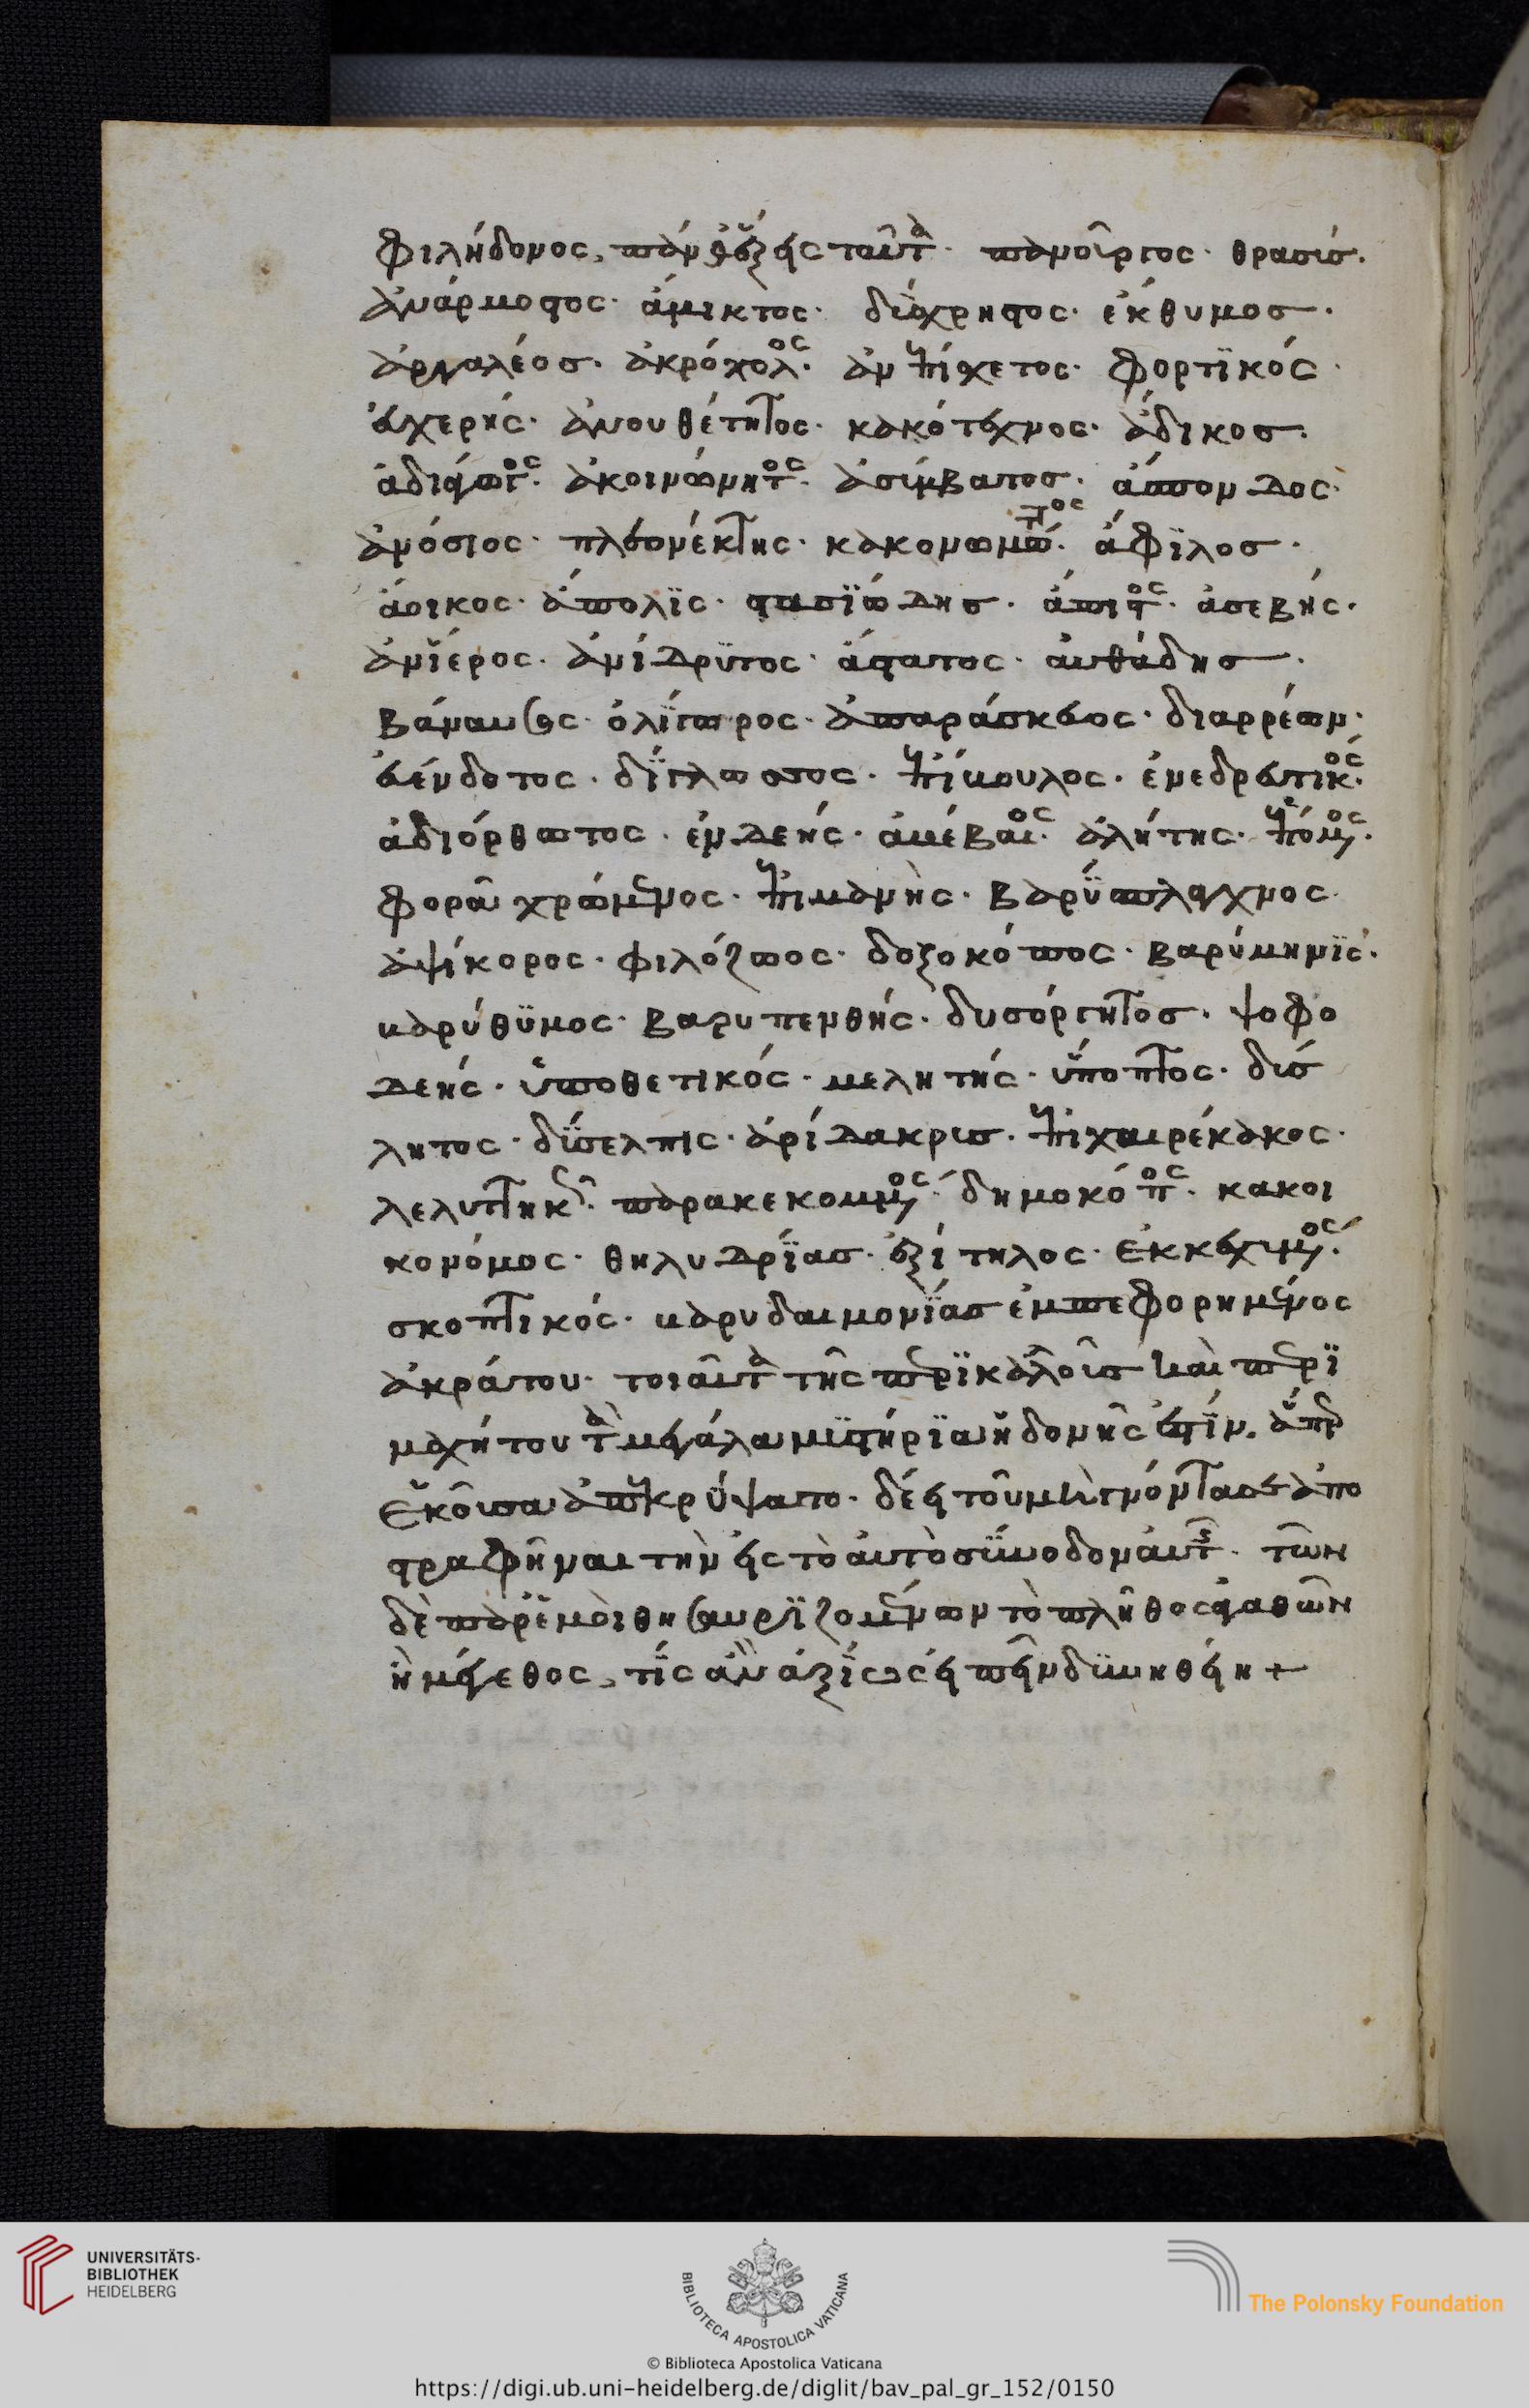 φιλήδονος, πάνθ' ἕξεις ταῦτα· πανοῦργος· θρασύς·
ἀνάρμοστος· ἄμικτος· δύσχρηστος· ἔκθυμοσ·
ἀργαλέοσ· ἀκρόχολος· ἀνεπίσχετος· φορτϊκός·
εὐχερής· ἀνουθέτητος· κακότεχνος· ἄδικοσ·
ἀδιάγωγος· ἀκοινώνητος· ἀσύμβατοσ· ἄσπονδος·
ἀνόσιος· πλεονέκτης· κακονομώτατος· ἄφϊλοσ·
ἄοικος· ἄπολϊς· στασϊώδησ· ἄπιστος· ἀσεβής·
ἀνΐερος· ἀνίδρϋτος· ἄστατος· αὐθάδησ·
βάναυσος· ὀλΐγωρος· ἀπαράσκευος· διαρρέων·
εὐένδοτος· δΐγλωσσος· ἐπίβουλος· ἐνεδρευτικός·
ἀδιόρθωτος· ἐνδεής· ἀβέβαιος· ἀλήτης· ἐπτοημένος·
φορᾶ χρώμενος· ἐπιμανής· βαρύσπλαγχνος
ἁψίκορος· φιλόζωος· δοξοκόπος· βαρύμηνϊς·
βαρύθϋμος· βαρυπενθής· δυσόργητοσ· ψοφο
δεής· ὑποθετικός· μελητής· ὕποπτος· δύσ
λητος· δύσελπις· ἀρίδακρυσ· ἐπιχαιρέκακος·
λελυττηκώς· παρακεκομμένος· δημοκόπος· κακοι
κονόμος· θηλυδρΐασ· ἐξίτηλος· ἐκκεχυμένος·
σκοπτικός· βαρυδαιμονΐασ ἐμπεφορημένος
ἀκράτου· τοιαῦτα τῆς περϊκαλλοῦσ καὶ περϊ
μαχήτου τὰ μεγάλα μϋστήρϊα ἡδονῆς ἐστϊν, ἅπερ
ἑκοῦσα ἀπεκρύψατο· δέει τοῦ μὴ γνόντασ σε ἀπο
στραφῆναι τὴν εἰς τὸ αὐτὸ σύνοδον αὐτῆς· τῶν
δὲ παρ' ἐμοὶ θησαυρϊζομένων τὸ πλῆθος ἀγαθῶν
ἢ μέγεθος, τίς ἂν ἀξίως εἰπεῖν δϋνηθείη +
UNIVERSITÄTS-
BIBLIOTHEK
HEIDELBERG
BIBLIOTECA APOSTOLICA VATICANA
The Polonsky Foundation
© Biblioteca Apostolica Vaticana
https://digi.ub.uni-heidelberg.de/diglit/bav_pal_gr_152/0150